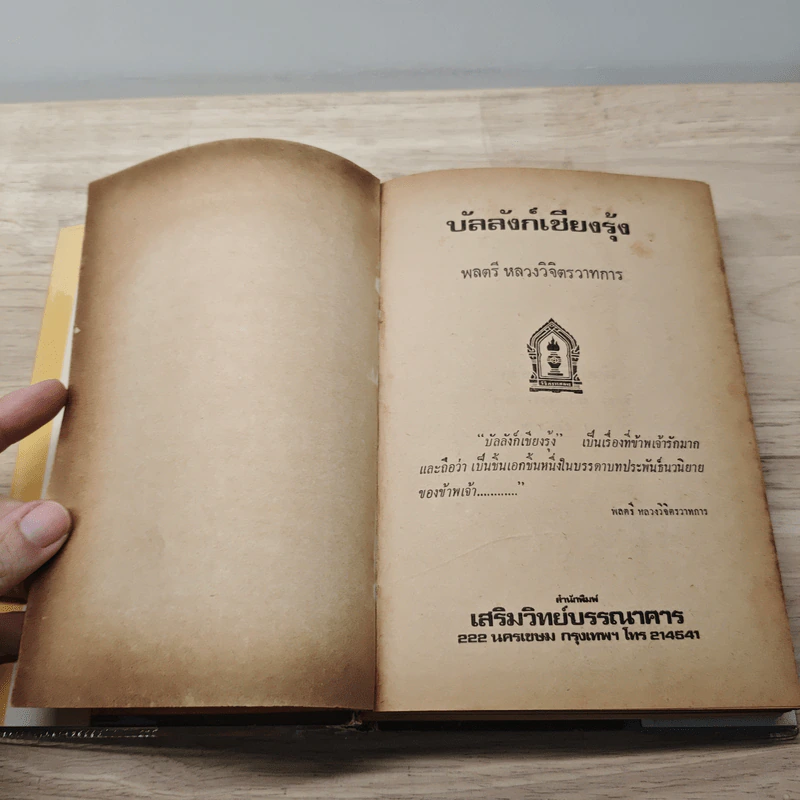 บัลลังก์เชียงรุ้ง
พลตรี หลวงวิจิตรวาทการ
"บัลลังก์เชียงรุ้ง" เป็นเรื่องที่ข้าพเจ้ารักมาก
และถือว่า เป็นชิ้นเอกชิ้นหนึ่งในบรรดาบทประพันธ์นวนิยาย
ของข้าพเจ้า............"
พลตรี หลวงวิจิตรวาทการ
สำนักพิมพ์
เสริมวิทย์บรรณาคาร
222 นครเขษม กรุงเทพฯ โทร 214541